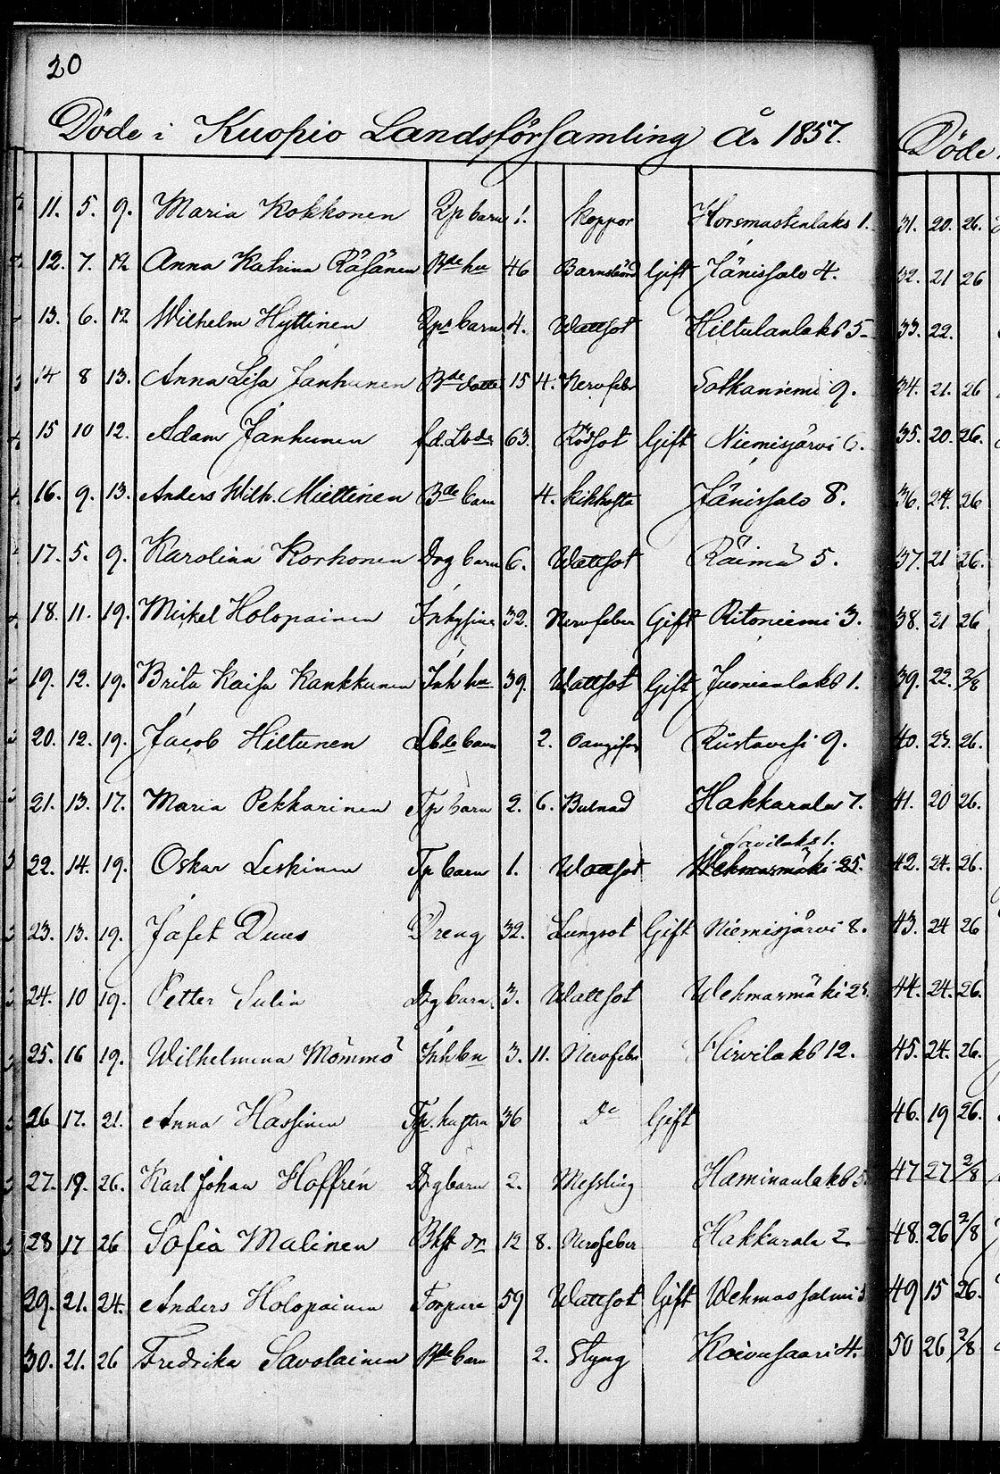 20
Döde i Kuopio Landsförsamling År 1857.
11. 5. 9. Maria Kokkonen Tp barn 1. koppor Horsmastenlaks 1.
12. 7. 12 Anna Katrina Räsänen Bde hu 46 Barnsbörd Gift Jänissalo 4.
13. 6. 12 Wilhelm Hyttinen barn 4. Wattsot Hiltulanlaks 5
14 8 13. Anna Lisa Janhunen Bde dotter 15 4. Nervfeber Sotkanniemi 9.
15 10 12. Adam Janhunen fd. Lbde 63. Rödsot Gift Niemisjärvi 6.
16. 9. 13. Anders Wilh. Miettinen Bde barn 4. kikhosta Jänissalo 8.
17. 5. 9. Karolina Korhonen Drg barn 6. Wattsot Räimä 5.
18. 11. 19. Mickel Holopainen Inhysing 32. Nervfeber Gift Ritoniemi 3.
19. 12. 19. Brita Kaisa Kankkunen Inh hu 39. Wattsot Gift Juonionlaks 1.
20. 12. 19. Jacob Hiltunen Lbde barn 2. Rüstavesi 9.
21. 13. 17. Maria Pekkarinen Tp barn 2. 6. Bulnad Hakkarala 7.
Savilaks 1.
22. 14. 19. Oskar Leskinen Tp barn 1. Wattsot Wehmasmäki 25.
23. 13. 19. Jafet Duus Dreng 32. Lungsot Gift Niemisjärvi 8.
24. 10 19. Petter Sulin Drg barn. 3. Wattsot Wehmasmäki 25
25. 16 19. Wilhelmina Mömmö Inh bn 3. 11. Nervfeber Hirvilaks 12.
26 17. 21. Anna Hassinen Tp. hustru 36 Do Gift
27. 19. 26. Karl Johan Hoffrén Drg barn 2. Messling Haminanlaks 5
28 17 26 Sofia Malinen dr 12 8. Nervfeber Hakkarala 2
29. 21. 24. Anders Holopainen Torpare 59 Wattsot Gift Wehmassalmi 5
30. 21. 26 Fredrika Savolainen Bde barn 2. Slag Koivusaari 4.
Döde
31. 20. 26.
32. 21 26
33. 22.
34. 21. 26
35. 20. 26.
36. 24. 26
37. 21 26.
38. 21 26
39. 22. 2/8
40. 23. 26.
41. 20 26.
42. 24. 26.
43. 24 26
44. 24. 26.
45. 24. 26.
46. 19 26.
47 27 2/8
48. 26 2/8
49 15 26.
50 26 2/8